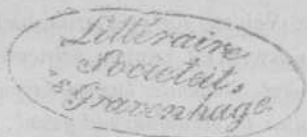 Littéraire
Societeit.
's Gravenhage